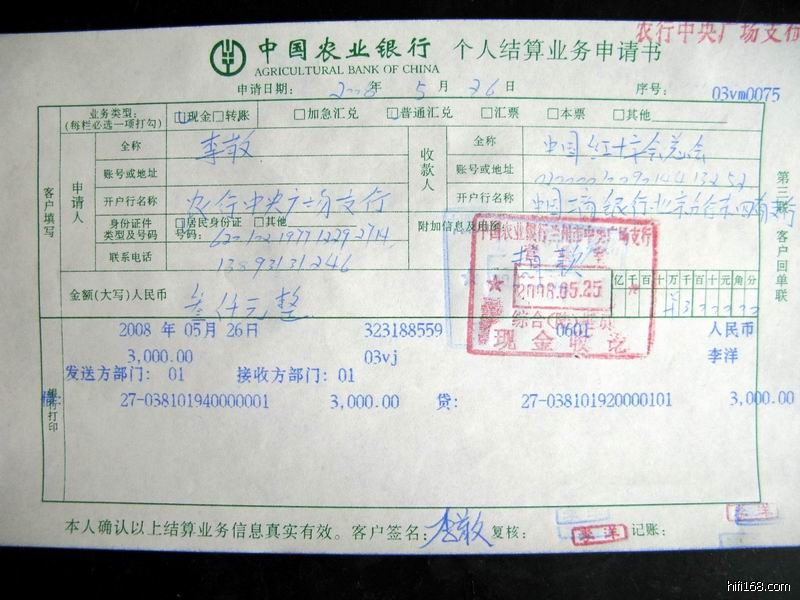 农行中央广场支行
中国农业银行 个人结算业务申请书
AGRICULTURAL BANK OF CHINA
申请日期： 2008 年 5 月 26 日 序号： 03vm0075
业务类型： (每栏必选一项打勾) 现金 转账 加急汇兑 普通汇兑 汇票 本票 其他
客户填写
申请人
全称 李敬
账号或地址
开户行名称 农行中央广场支行
身份证件类型及号码 居民身份证 其他
号码：
联系电话
收款人
全称 中国红十字会总会
账号或地址
开户行名称
附加信息及用途： 捐款
金额(大写)人民币 叁仟元整
亿千百十万千百十元角分
第三联 客户回单联
中国农业银行兰州市中央广场支行
2008.05.25
现金收讫
2008 年 05月 26日 323188559 0601 人民币
3,000.00 03vj 李洋
发送方部门： 01 接收方部门： 01
27-038101940000001 3,000.00 贷： 27-038101920000101 3,000.00
银行打印
本人确认以上结算业务信息真实有效。客户签名： 李敬 复核： 李洋 记账： 李洋
hifi168.com